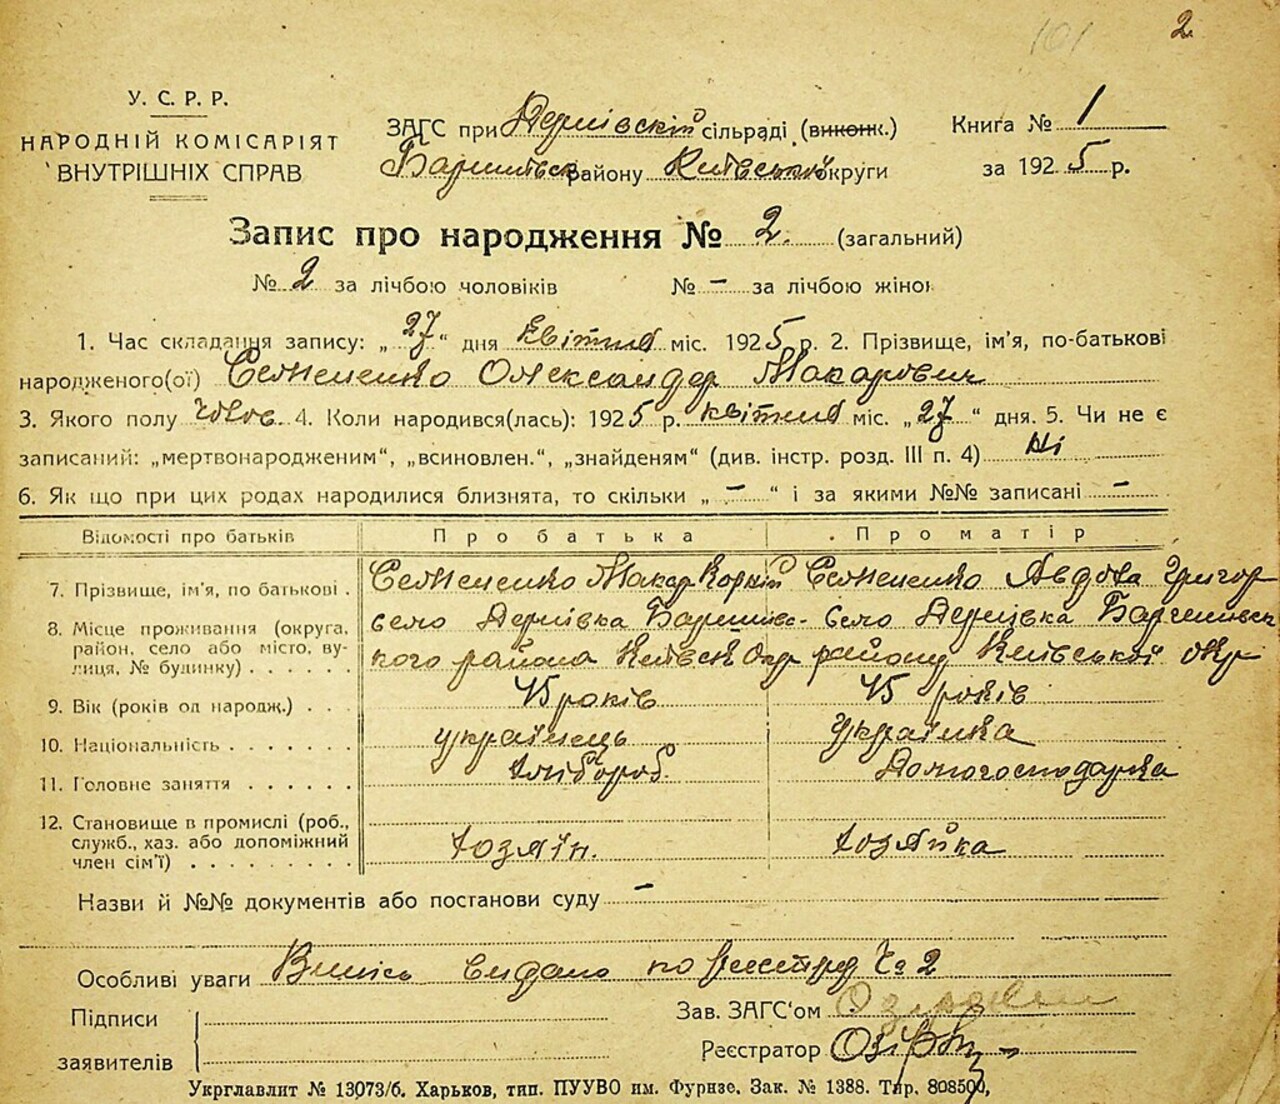 101 2
У. С. Р. Р.
НАРОДНІЙ КОМІСАРІЯТ
ВНУТРІШНІХ СПРАВ
ЗАГС при Дернівскій сільраді (виконк.)
Баришівськ району Київської округи
Книга № 1
за 1925 р.
Запис про народження № 2. (загальний)
№ 2 за лічбою чоловіків № – за лічбою жінок
1. Час складання запису: „27“ дня квітня міс. 1925 р. 2. Прізвище, ім'я, по-батькові
народженого(ої) Семененко Олександер Макарович
3. Якого полу чолов. 4. Коли народився(лась): 1925 р. квітня міс. „27“ дня. 5. Чи не є
записаний: „мертвонародженим“, „всиновлен.“, „знайденям“ (див. інстр. розд. III п. 4) Ні
6. Як що при цих родах народилися близнята, то скільки „–“ і за якими №№ записані –
Відомості про батьків Про батька Про матір
7. Прізвище, ім'я, по батькові . Семененко Макар Корній Семененко Авдота Григор
8. Місце проживання (округа, район, село або місто, вулиця, № будинку) . . . . . .
село Дернівка Баришівс- село Дернівка Баришівськ
кого района Київськ Окр району Київської окр
9. Вік (років од народж.) . . . 45 років 45 років
10. Національність . . . . . . . українець українка
11. Головне заняття . . . . . . хлібороб. Домогосподарка
12. Становище в промислі (роб.,
служб., хаз. або допоміжний
член сім'ї) . . . . . . . . . Хозяїн. Хозяйка
Назви й №№ документів або постанови суду –
Особливі уваги Випись видано по реєстру № 2
Підписи
заявителів
Зав. ЗАГС'ом
Реєстратор
Укрглавлит № 13073/б. Харьков, тип. ПУУВО им. Фрунзе. Зак. № 1388. Тир. 808500,